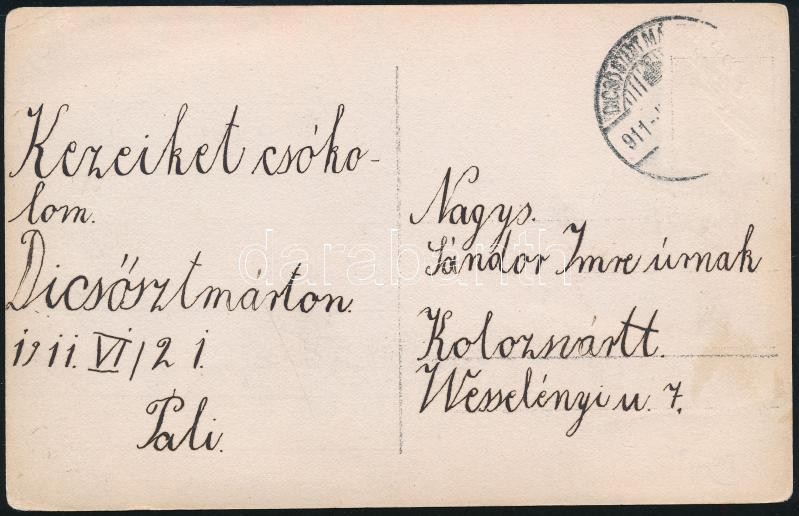 Kezeiket csóko-
lom.
Dicsősztmárton.
1911. VI/21.
Pali.
DICSŐSZENTMÁ
911
Nagys.
Sándor Imre úrnak
Kolozsvártt.
Wesselényi u. 7.
darabanth